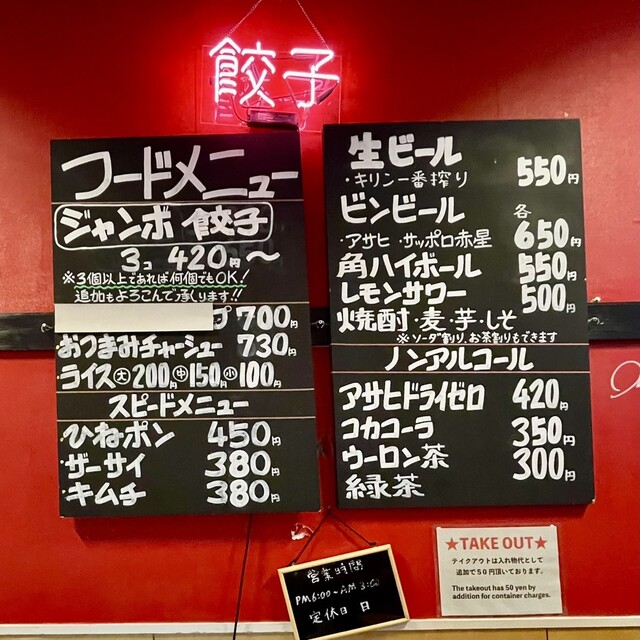 餃子
フードメニュー
ジャンボ餃子
3コ 420円〜
※3個以上であれば何個でもOK!
追加もよろこんで承ります!!
プ 700円
おつまみチャーシュー 730円
・ライス 大 200円 中 150円 小 100円
スピードメニュー
・ひねポン 450円
・ザーサイ 380円
・キムチ 380円
生ビール
・キリン一番搾り 550円
ビンビール 各
・アサヒ ・サッポロ赤星 650円
角ハイボール 550円
レモンサワー 500円
焼酎・麦・芋・しそ
※ソーダ割り、お茶割りもできます
ノンアルコール
アサヒドライゼロ 420円
コカコーラ 350円
ウーロン茶 300円
緑茶
営業時間
PM6:00~AM3:00
定休日 日
★TAKE OUT★
テイクアウトは入れ物代として
追加で50円頂いております。
The takeout has 50 yen by
addition for container charges.